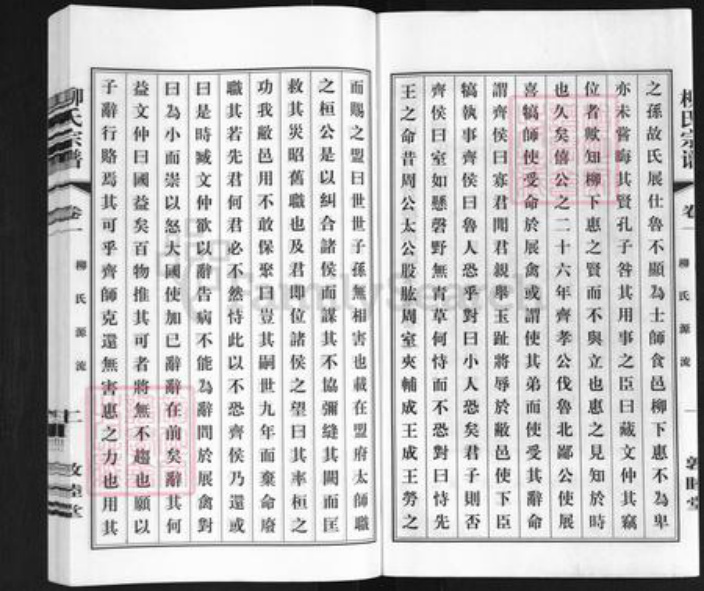 柳氏宗譜
卷一
柳氏源流
一
敦睦堂
之孫故氏展仕魯不顯為士師食邑柳下惠不為卑
亦未嘗晦其賢孔子咎其用事之臣曰藏文仲其竊
位者歟知柳下惠之賢而不與立也惠之見知於時
也久矣僖公之二十六年齊孝公伐魯北鄙公使展
喜犒師使受命於展禽或謂使其弟而使受其辭命
謂齊侯曰寡君聞君親舉玉趾將辱於敝邑使下臣
犒執事齊侯曰魯人恐乎對曰小人恐矣君子則否
齊侯曰室如懸磬野無青草何恃而不恐對曰恃先
王之命昔周公太公股肱周室夾輔成王成王勞之
而賜之盟曰世世子孫無相害也載在盟府太師職
之桓公是以糾合諸侯而謀其不協彌縫其闕而匡
救其災昭舊職也及君即位諸侯之望曰其率桓之
功我敝邑用不敢保聚曰豈其嗣世九年而棄命廢
職其若先君何君必不然恃此以不恐齊侯乃還或
曰是時臧文仲欲以辭告病不能為辭問於展禽對
曰為小而崇以怒大國使加已辭辭在前矣辭其何
益文仲曰國益矣百物推其可者將無不趨也願以
子辭行賂焉其可乎齊師克還無害惠之力也用其
柳氏宗譜
卷一
柳氏源流
二
敦睦堂
FamilySearch